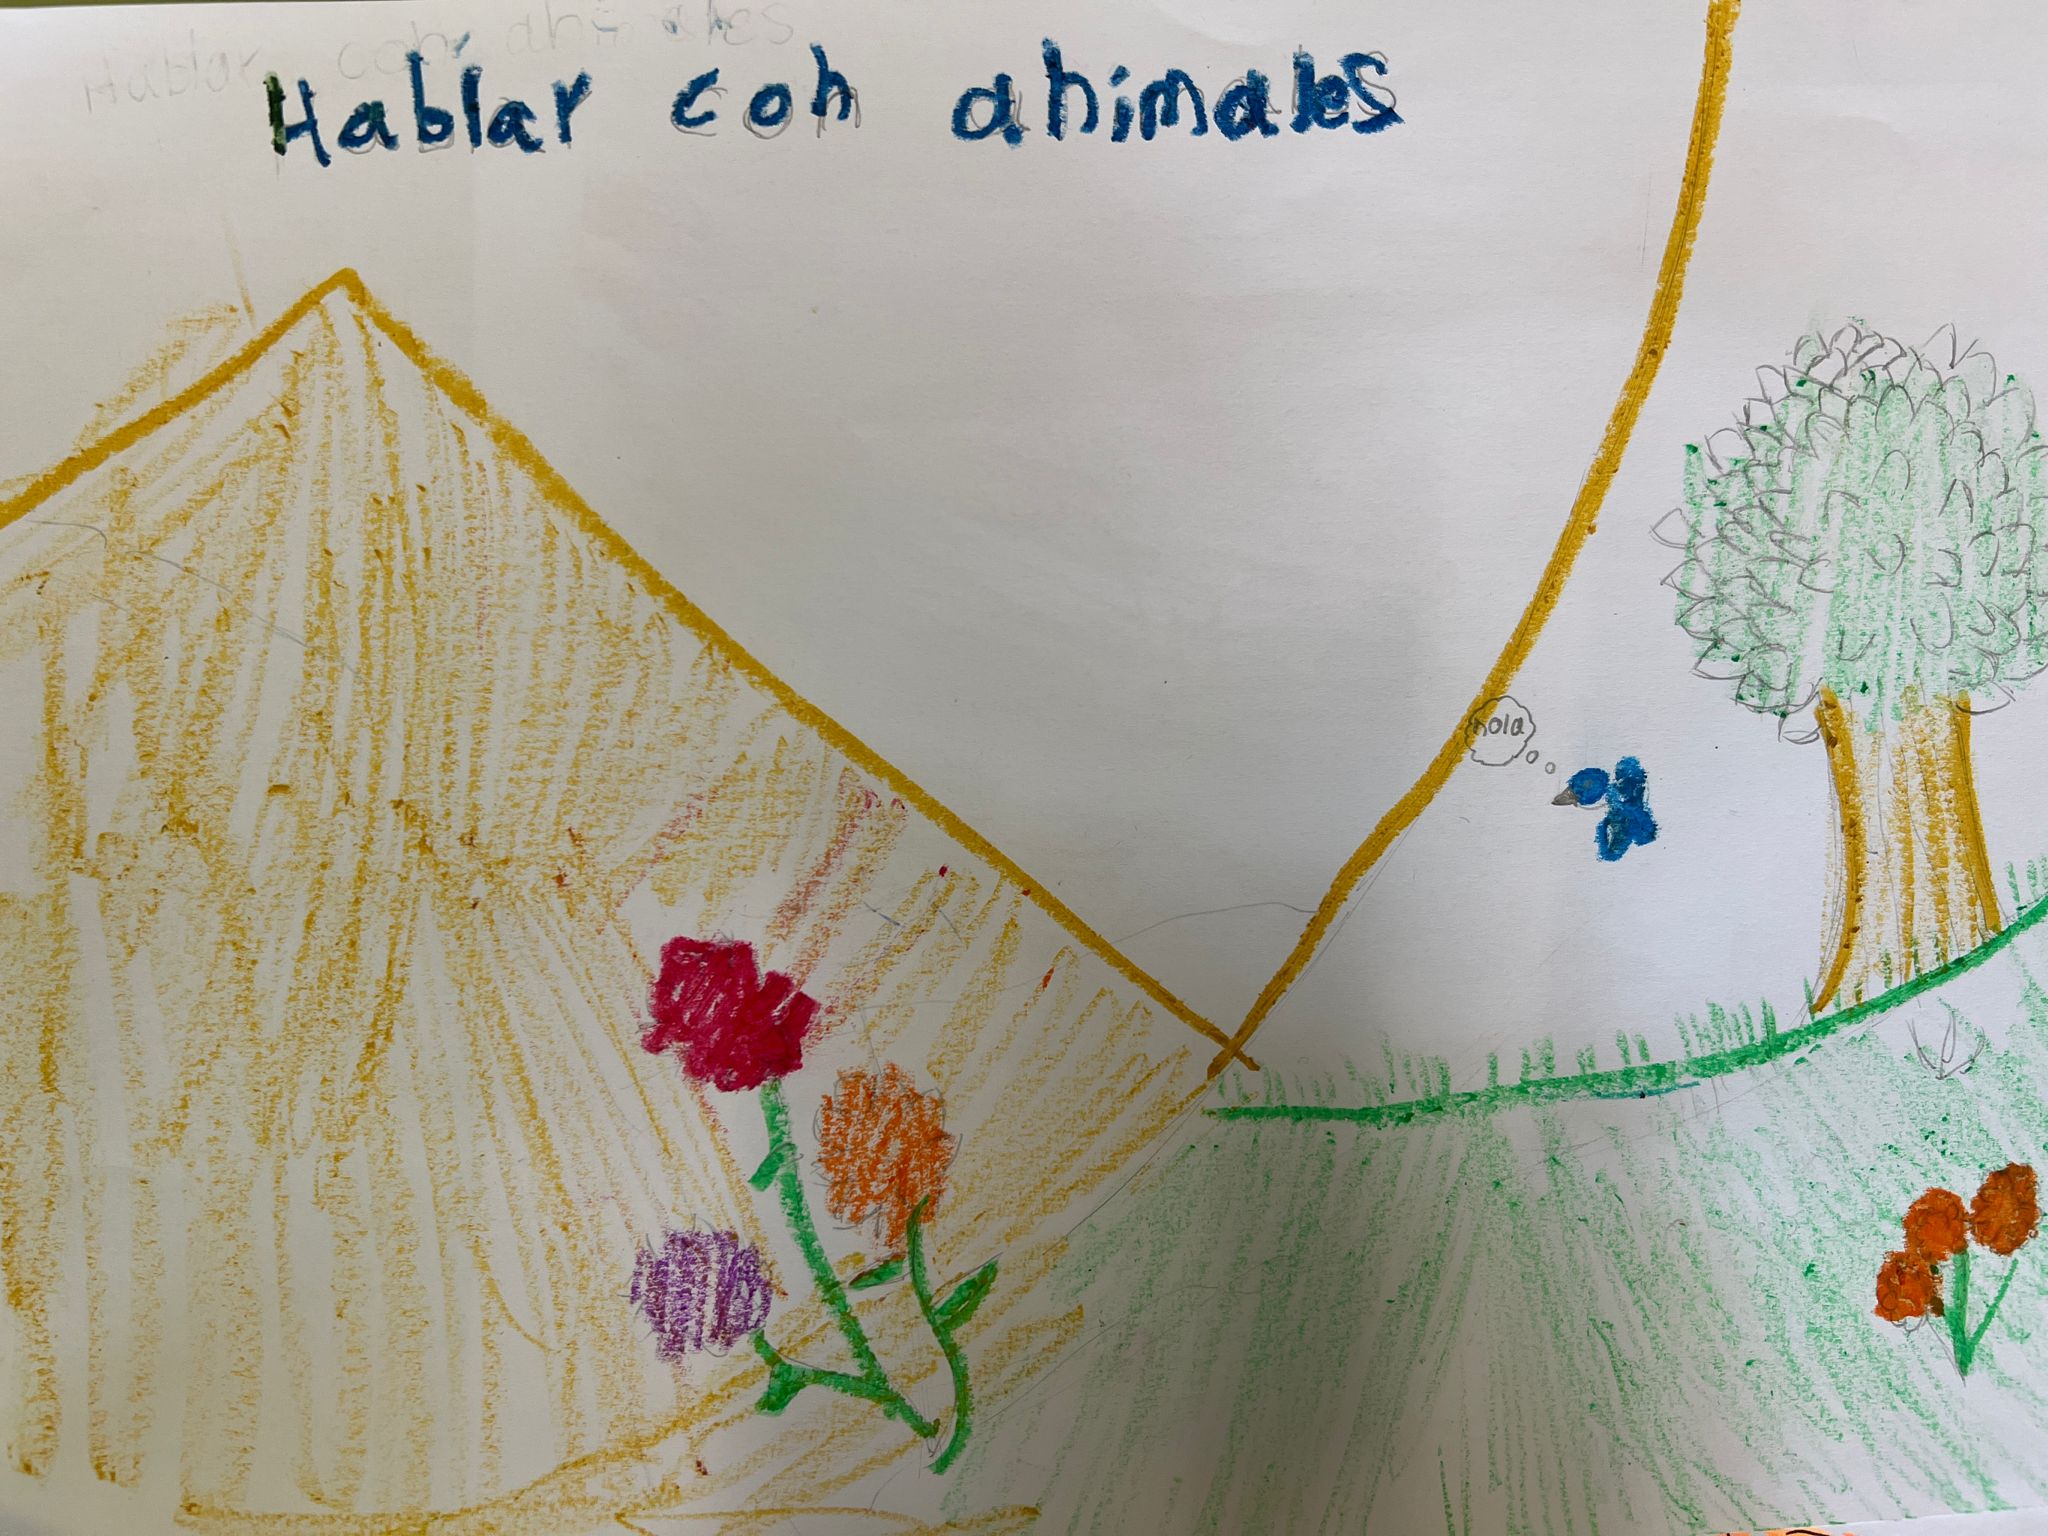 Hablar con animales
Hablar con animales
hola